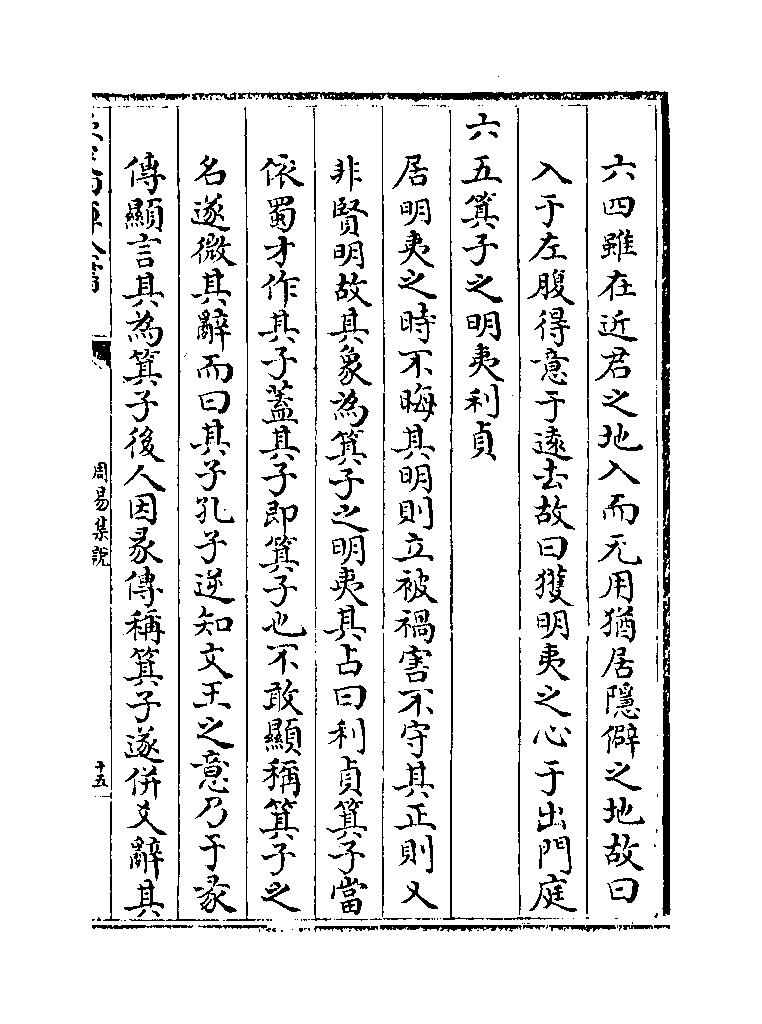 六四雖在近君之地入而无用猶居隱僻之地故曰
入于左腹得意于遠去故曰獲明夷之心于出門庭
六五箕子之明夷利貞
居明夷之時不晦其明則立被禍害不守其正則又
非賢明故其象為箕子之明夷其占曰利貞箕子當
依蜀才作其子蓋其子即箕子也不敢顯稱箕子之
名遂微其辭而曰其子孔子逆知文王之意乃于彖
傳顯言其為箕子後人因彖傳稱箕子遂併爻辭其
周易集說
十五